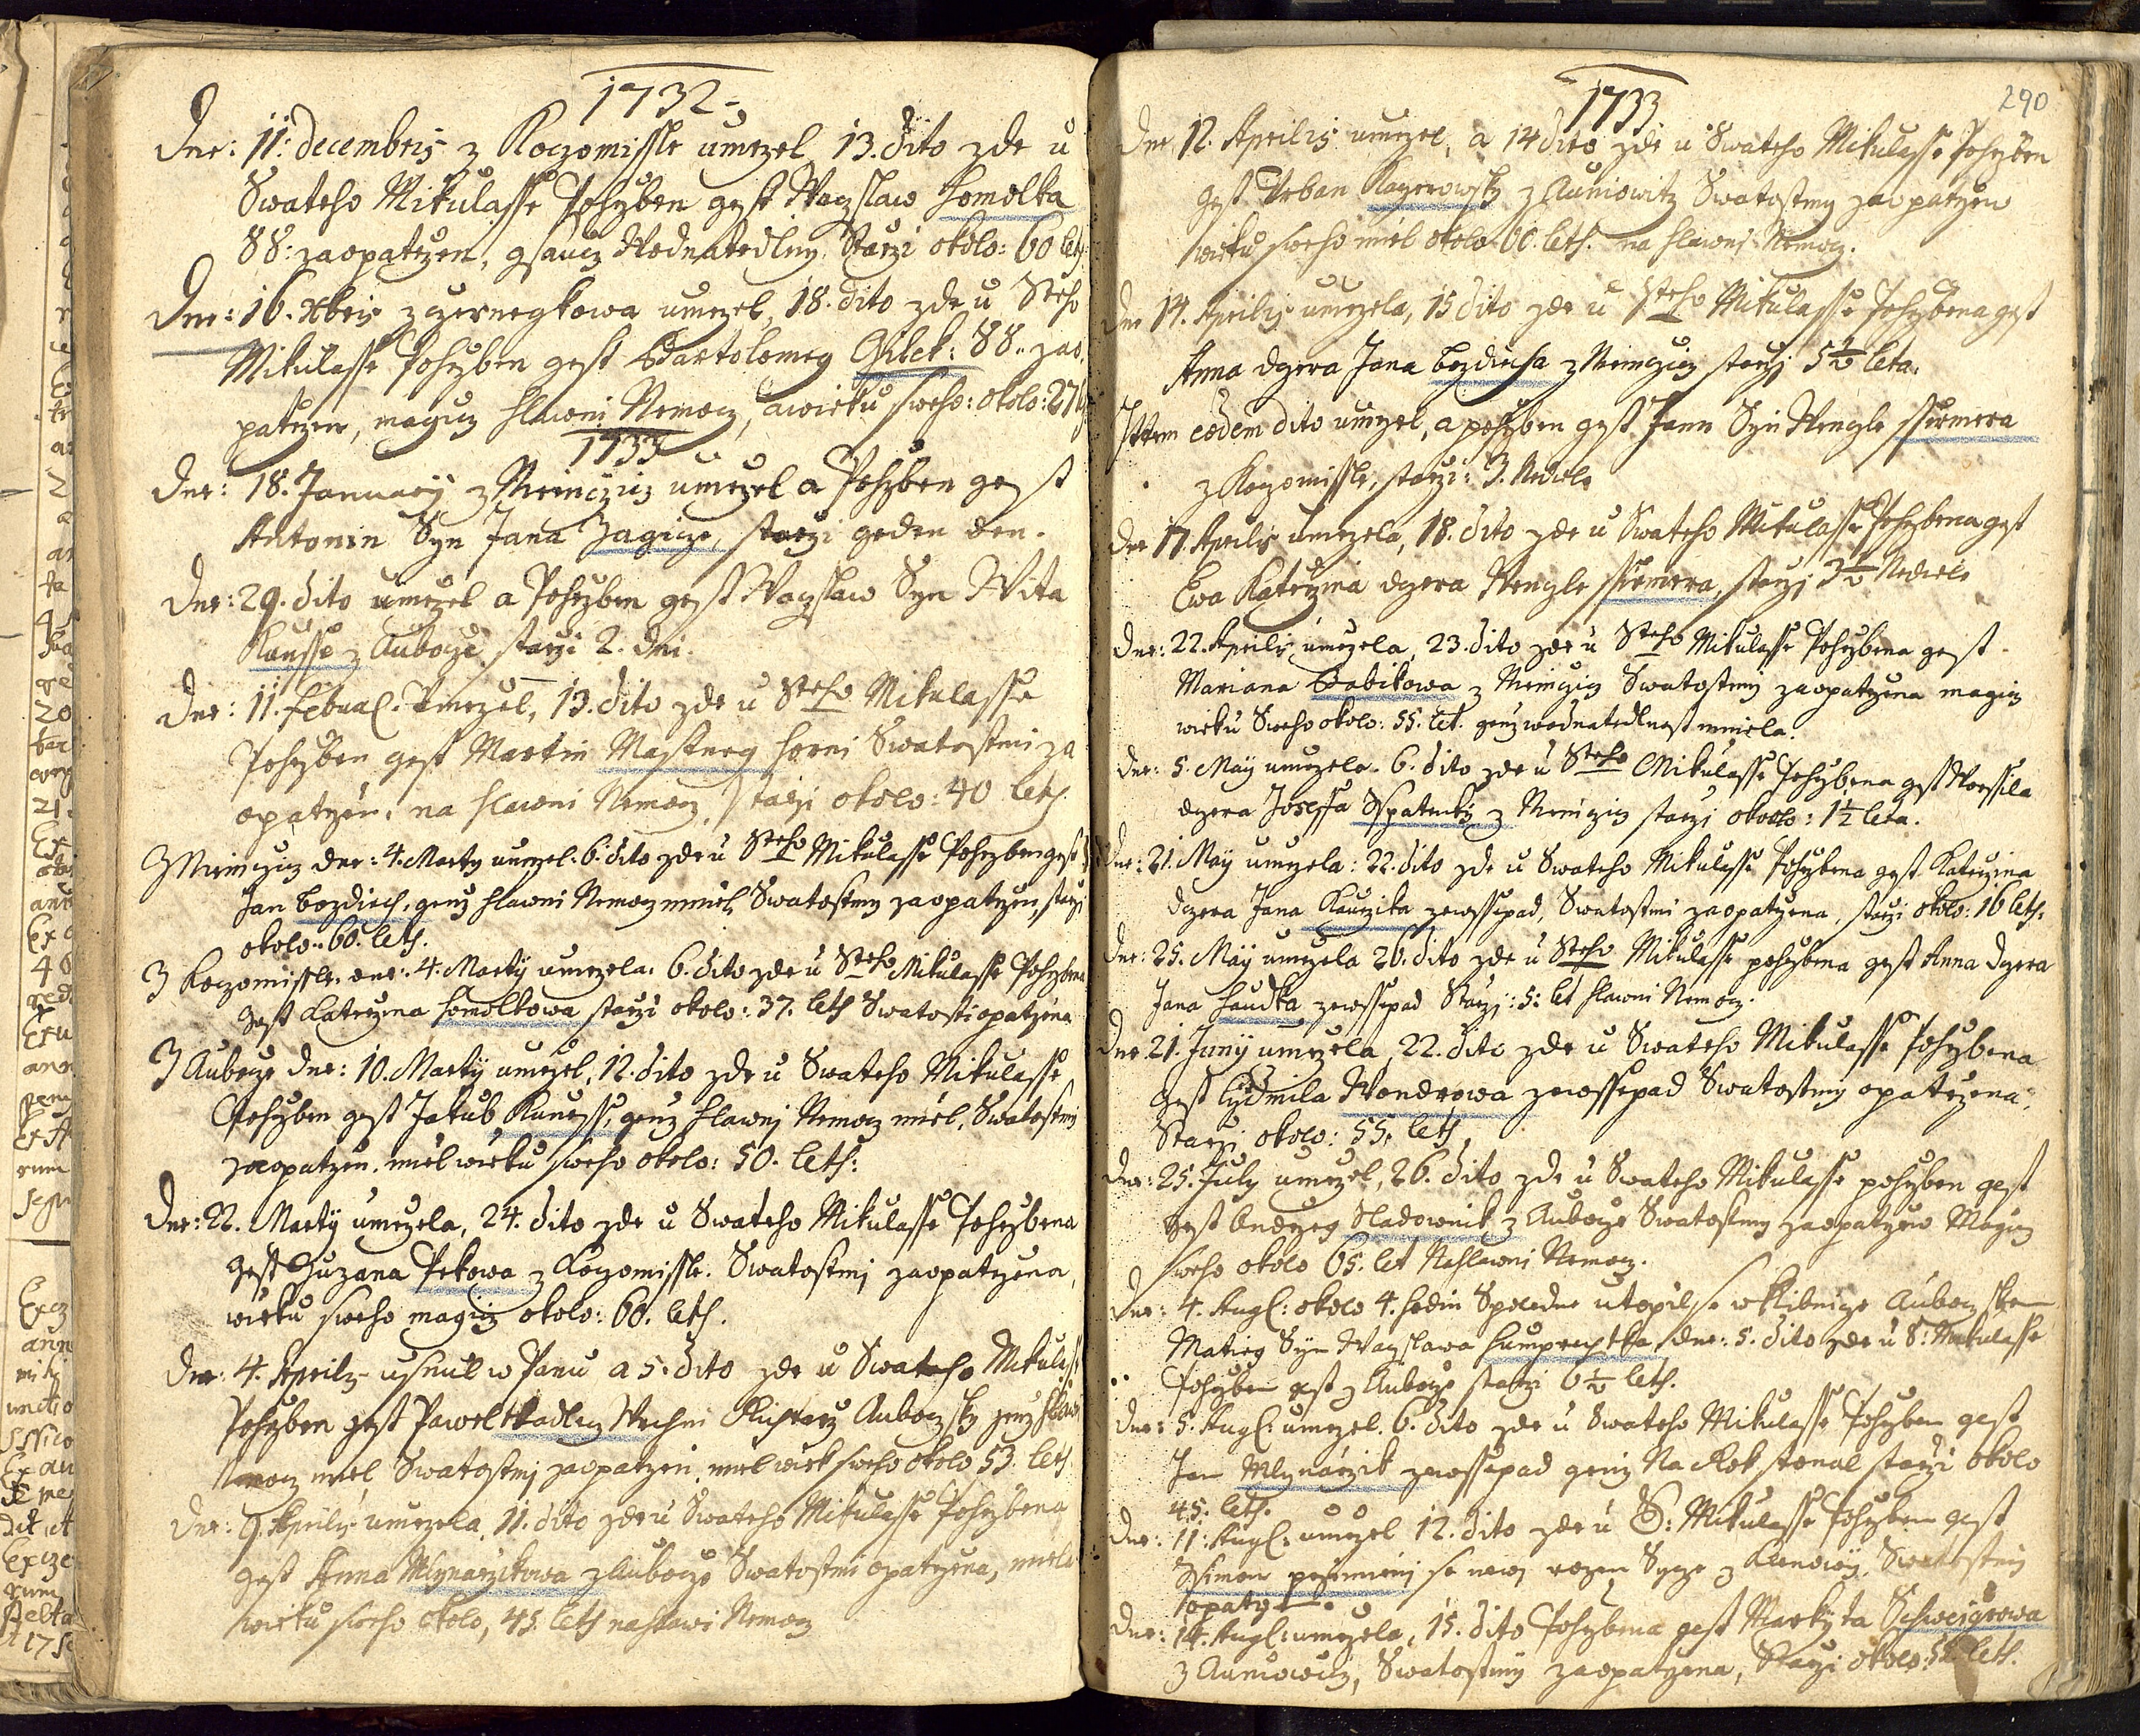 1732
Dne: 11: decembris z Koczomissle umrzel 13. dito zde u
Swateho Mikulasse Pohrzben gest Waczslaw homolka
SS: zaopatrzen, gsaucz Wodnatedlny Starzi okolo: 60 leth
Dne: 16. Xbris z czernegkowa umrzel, 18. dito zde u Steho
Mikulasse Pohrzben gest Bartolomeg Gilek: SS.. zao
patrzen, magicz hlawni Nemocz, a wieku sweho: okolo: 27
1733
Dne: 18. January z Niemczicz umrzel a Pohrzben gest
Antonin Syn Jana Zagicze, starzi geden den.
Dne: 29. dito umrzel a Pohrzben gest Waczslaw Syn Wita
Kunsse z Auborze starzi 2. dni.
Dne: 11. Februa: Umrzel, 13. dito zde u Steho Mikulasse
Pohrzben gest Martin Mastneg horni Swatostmi za
opatrzen, na hlawni Nemocz, starzi okolo: 40 leth.
Z Niemczicz dne: 4. Marty umrzel. 6. dito zde u Steho Mikulasse Pohrzben gest
Jan bozdiech, genz hlawni Nemocz mniel, Swatostmy zaopatrzen, starzi
okolo.. 60. leth.
Z Koczomissle. dne: 4. Martÿ umrzela. 6. dito zde u Steho Mikulasse Pohrzbena
gest Katerzina homolkowa starzi okolo: 37. leth Swatosti opatrzena
Z Auborze dne: 10. Martÿ umrzel, 12. dito zde u Swateho Mikulasse
Pohrzben gest Jakub Kuness, genz hlawni Nemocz miel, Swatostmi
zaopatrzen. miel wieku sweho okolo: 50. leth:
Dne: 22. Martÿ umrzela, 24. dito zde u Swateho Mikulasse Pohrzbena
gest Zuzana Pekowa z Koczomissle. Swatostmi zaopatrzena,
wieku sweho magicz okolo: 60. leth.
Dne: 4. Aprilis usnul w Panu a 5. dito zde u Swateho Mikulass
Pohrzben gest Pawel tkadlecz Rychtarz Auborzsky genz hlaw
Nemocz miel, Swatostmi zaopatrzen, miel wiek sweho okolo 53. leth
Dne: 9. Aprilis umrzela, 11. dito zde u Swateho Mikulasse Pohrzbena
gest Anna Mlynarzikowa z Auborze Swatostmi opatrzena, miela
wieku sweho okolo, 45. leth na hlawni Nemocz
290
1733
Dne 12. Aprilis umrzel, a 14 dito zde u Swateho Mikulasse Pohrzben
gest Urban Kayerowsky z Auniowitz Swatostmy zaopatrzen
wieku sweho miel okolo 60. leth. na hlawni Nemocz.
Dne 14. Aprilis umrzela, 15 dito zde u Steho Mikulasse Pohrzbena gest
Anna dczera Jana bozdiecha z Niemczicz starzi 5½ leta.
Ittem eodem dito umrzel, a pohrzben gest Jann Syn Wenzle ssirmera
z Koczomissle, starzi: 3. Nedele
Dne 17. Aprilis umrzela, 18. dito zde u Swateho Mikulasse Pohrzbena gest
Ewa Katerzina dczera Wenzle ssirmera, starzi 3½ Nedele
Dne: 22. Aprilis umrzela, 23. dito zde u Steho Mikulasse Pohrzbena gest
Mariana Babikowa z Niemczicz Swatostmi zaopatrzena magicz
wieku Sweho okolo: 55. let. genz wodnatedlnost mniela.
Dne: 5. Maÿ umrzela. 6. dito zde u Steho Mikulasse Pohrzbena gest Worssila
dczera Joseffa Sspatenky z Niemczicz starzi okolo: 1½ leta.
Dne: 21. Maÿ umrzela: 22. dito zde u Swateho Mikulasse Pohrzbena gest Katerzina
dczera Jana Kaurzika zewssepad, Swatostmi zaopatrzena, starzi okolo: 16 leth.
Dne: 25. Maÿ umrzela 26. dito zde u Steho Mikulasse pohrzbena gest Anna Dczera
Jana haudka zewssepad Starzi: 5: let hlawni Nemocz.
Dne 21. Junÿ umrzela, 22. dito zde u Swateho Mikulasse Pohrzbena
gest Lidmila Wondrowa zewssepad Swatostmy opatrzena,
Starzi okolo: 55. leth
Dne: 25. July umrzel, 26. dito zde u Swateho Mikulasse pohrzben gest
gest Andrzeg Sladownik z Auborze Swatostmy zaopatrzen Magicz
sweho okolo 65. let Na hlawni Nemocz.
Dne: 4. Aug: okolo 4. hodin Spoledne utopil se w Ribnicze Auborzskem
Matieg Syn Waczslawa humprechtka, dne: 5. dito zde u S: Mikulasse
Pohrzben gest z Auborze starzi 6½ leth.
Dne: 5. Aug: umrzel. 6. dito zde u Swateho Mikulasse Pohrzben gest
Jan Mlynarzik zewssepad genz Na Rok stonal starzi okolo
45. leth.
Dne: 11: Aug: umrzel 12. dito zde u S: Mikulasse Pohrzben gest
Ssimon Swatostmy
opatrz
Dne: 14. Aug: umrzela, 15. dito Pohrzbena gest Markyta Schweigrowa
z Auniowicz, Swatostmy zaopatrzena, Starzi okolo: leth.